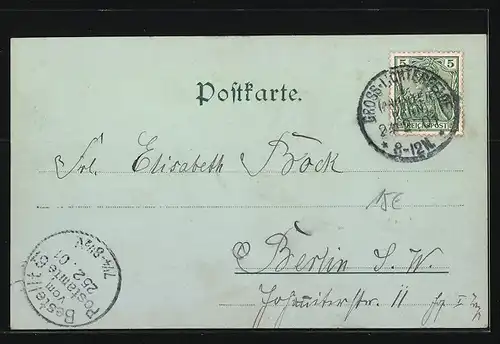 Postkarte.
5 5
REICHSPOST
GROSS-LICHTERFELDE
* 8-12N. *
Frl. Elisabeth Bock
15E
Berlin S. W.
Johanniterstr. 11
Bestellt
vom
Postamte 61
25.2.01
7¼-8½V.